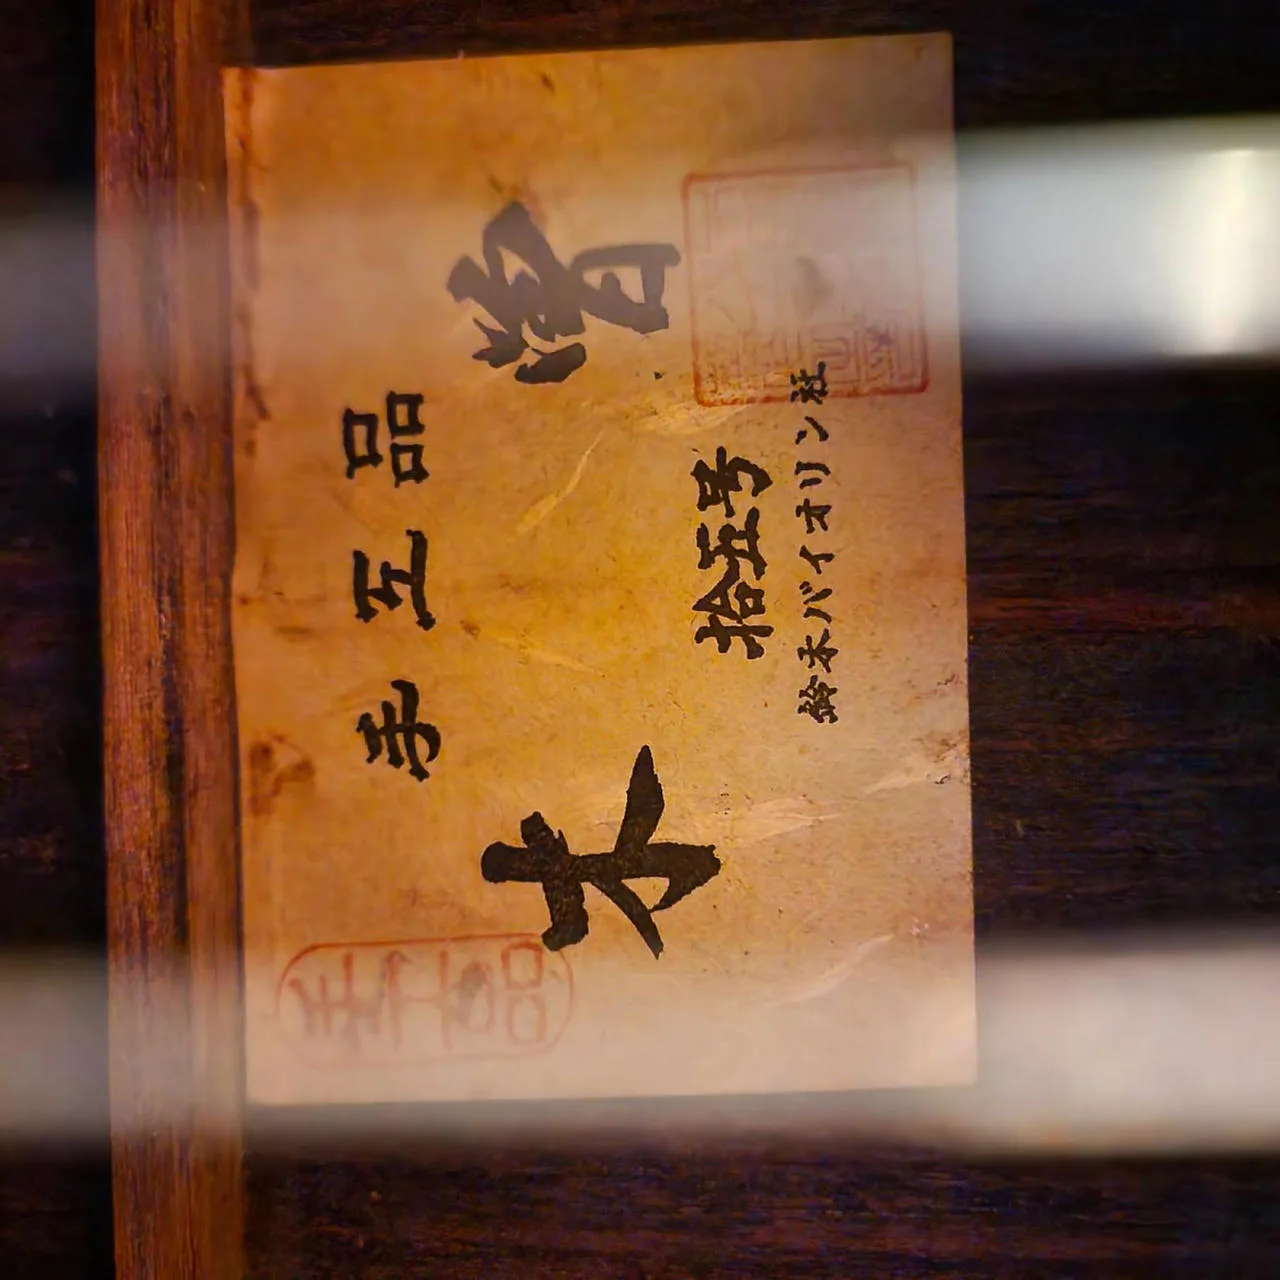 手工品
木曾
拾五号
鈴木バイオリン社